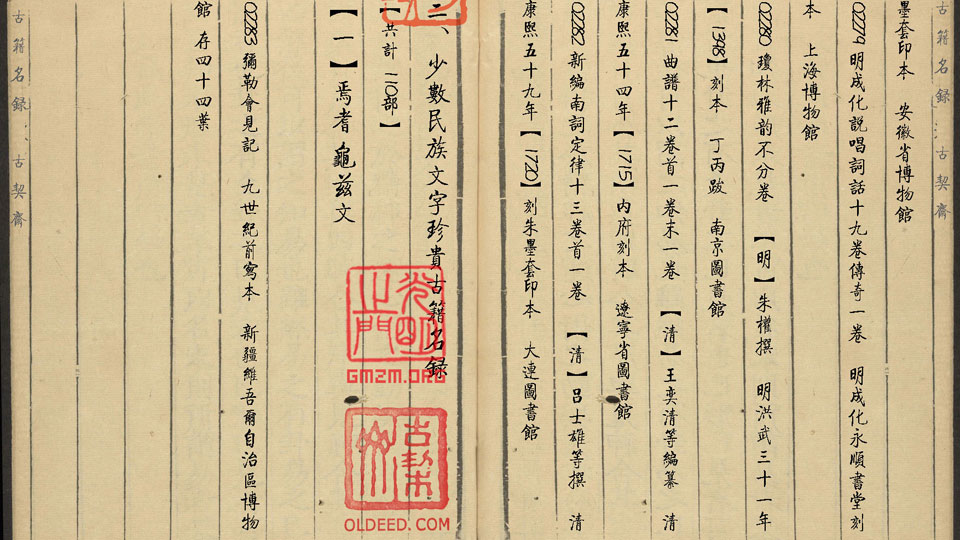 古籍名録 古契齋
墨套印本 安徽省博物館
02279 明成化説唱詞話十九卷傳奇一卷 明成化永順書堂刻
本 上海博物館
02280 瓊林雅韵不分卷 【明】朱權撰 明洪武三十一年
【1398】刻本 丁丙跋 南京圖書館
02281 曲譜十二卷首一卷末一卷 【清】王奕清等編纂 清
康熙五十四年【1715】内府刻本 遼寧省圖書館
02282 新編南詞定律十三卷首一卷 【清】吕士雄等撰 清
康熙五十九年【1720】刻朱墨套印本 大連圖書館
二、少數民族文字珍貴古籍名録
【共計 110部】
【一】焉耆龜兹文
02283 彌勒會見記 九世紀前寫本 新疆維吾爾自治區博物
館 存四十四葉
古籍名録 古契齋
光明之門
GMZM.ORG
古契
OLDEED.COM